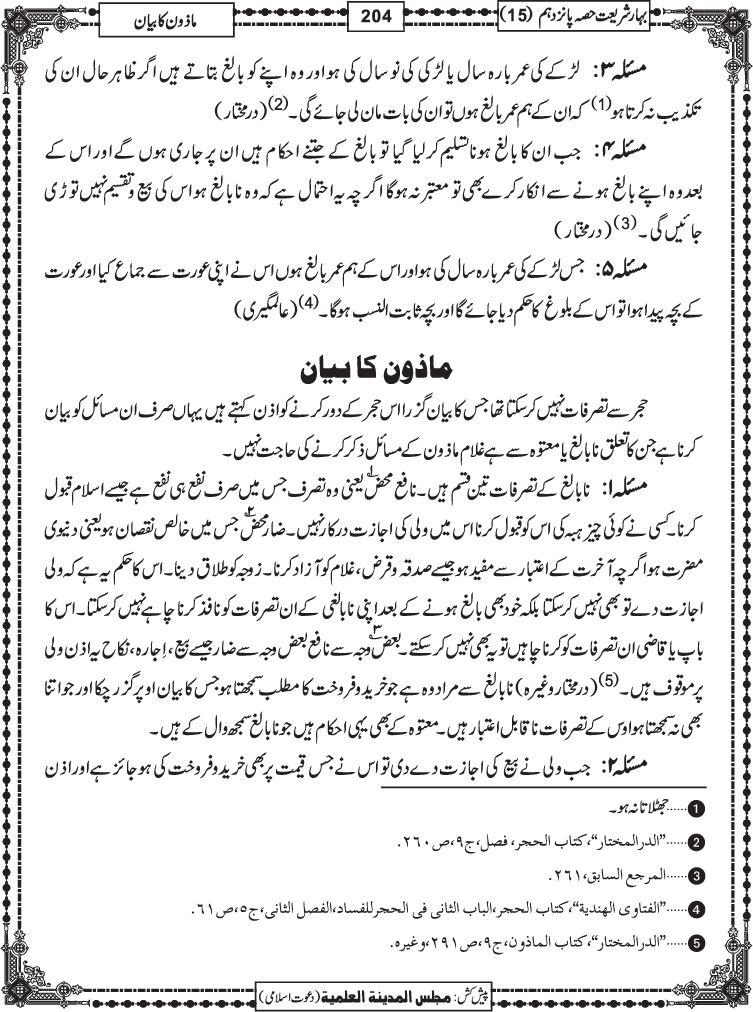 بہار شریعت حصہ پانزدہم (15)
204
ماذون کا بیان
مسئلہ ۳: لڑکے کی عمر بارہ سال یا لڑکی کی نو سال کی ہو اور وہ اپنے کو بالغ بتاتے ہیں اگر ظاہر حال ان کی
تکذیب نہ کرتا ہو (1) کہ ان کے ہم عمر بالغ ہوں تو ان کی بات مان لی جائے گی۔ (2) (درمختار)
مسئلہ ۴: جب ان کا بالغ ہونا تسلیم کرلیا گیا تو بالغ کے جتنے احکام ہیں ان پر جاری ہوں گے اور اس کے
بعد وہ اپنے بالغ ہونے سے انکار کرے بھی تو معتبر نہ ہوگا اگرچہ یہ احتمال ہے کہ وہ نابالغ ہو اس کی بیع و تقسیم نہیں توڑی
جائیں گی۔ (3) (درمختار)
مسئلہ ۵: جس لڑکے کی عمر بارہ سال کی ہو اور اس کے ہم عمر بالغ ہوں اس نے اپنی عورت سے جماع کیا اور عورت
کے بچہ پیدا ہوا تو اس کے بلوغ کا حکم دیا جائے گا اور بچہ ثابت النسب ہوگا۔ (4) (عالمگیری)
ماذون کا بیان
حجر سے تصرفات نہیں کرسکتا تھا جس کا بیان گزرا اس حجر کے دور کرنے کو اذن کہتے ہیں یہاں صرف ان مسائل کو بیان
کرنا ہے جن کا تعلق نابالغ یا معتوہ سے ہے غلام ماذون کے مسائل ذکر کرنے کی حاجت نہیں۔
مسئلہ ۱: نابالغ کے تصرفات تین قسم ہیں۔ نافع محض ۱؎ یعنی وہ تصرف جس میں صرف نفع ہی نفع ہے جیسے اسلام قبول
کرنا۔ کسی نے کوئی چیز ہبہ کی اس کو قبول کرنا اس میں ولی کی اجازت درکار نہیں۔ ضار محض ۲؎ جس میں خالص نقصان ہو یعنی دنیوی
مضرت ہو اگرچہ آخرت کے اعتبار سے مفید ہو جیسے صدقہ و قرض، غلام کو آزاد کرنا۔ زوجہ کو طلاق دینا۔ اس کا حکم یہ ہے کہ ولی
اجازت دے تو بھی نہیں کرسکتا بلکہ خود بھی بالغ ہونے کے بعد اپنی نابالغی کے ان تصرفات کو نافذ کرنا چاہے نہیں کرسکتا۔ اس کا
باپ یا قاضی ان تصرفات کو کرنا چاہیں تو یہ بھی نہیں کرسکتے۔ بعض ۳؎ وجہ سے نافع بعض وجہ سے ضار جیسے بیع، اجارہ، نکاح یہ اذن ولی
پر موقوف ہیں۔ (5) (درمختار وغیرہ) نابالغ سے مراد وہ ہے جو خرید و فروخت کا مطلب سمجھتا ہو جس کا بیان اوپر گزر چکا اور جو اتنا
بھی نہ سمجھتا ہو اوس کے تصرفات ناقابل اعتبار ہیں۔ معتوہ کے بھی یہی احکام ہیں جو نابالغ سمجھ وال کے ہیں۔
مسئلہ ۲: جب ولی نے بیع کی اجازت دے دی تو اس نے جس قیمت پر بھی خرید و فروخت کی ہو جائز ہے اور اذن
1 ......جھٹلاتا نہ ہو۔
2 ......"الدرالمختار"، کتاب الحجر، فصل، ج۹، ص۲۶۰.
3 ......المرجع السابق، ۲۶۱.
4 ......"الفتاوی الهندیة"، کتاب الحجر، الباب الثانی فی الحجر للفساد، الفصل الثانی، ج۵، ص۶۱.
5 ......"الدرالمختار"، کتاب الماذون، ج۹، ص۲۹۱، وغیرہ.
پیش کش: مجلس المدینة العلمیة (دعوت اسلامی)